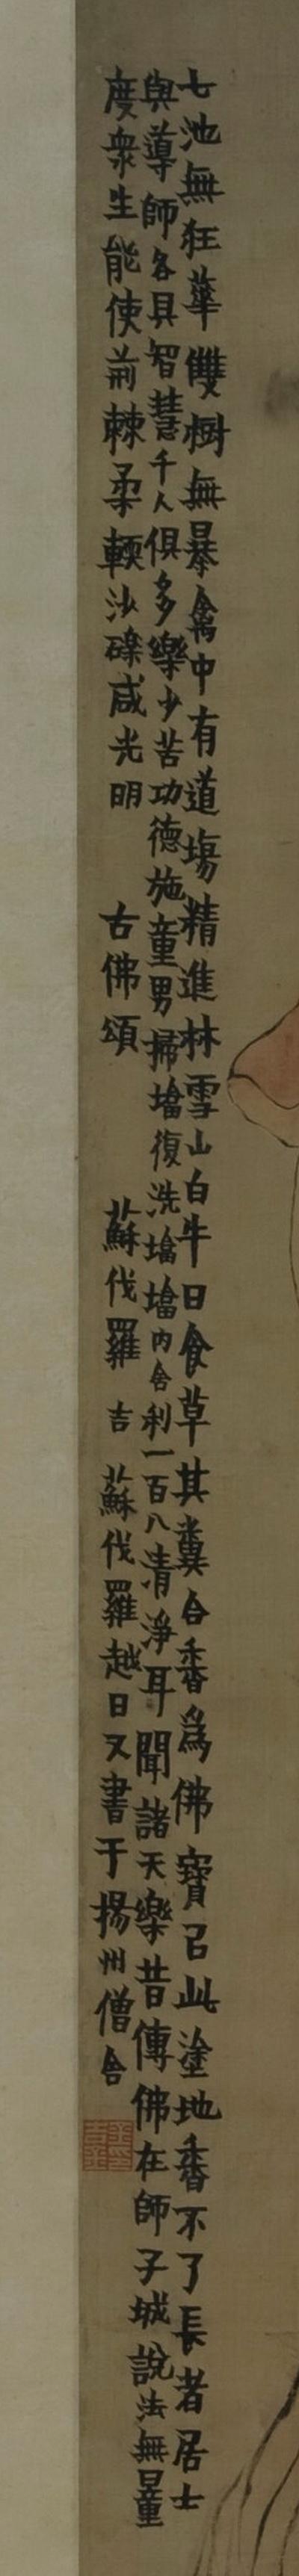 七池無狂華雙樹無暴禽中有道場精進林雪山白牛日食草其糞合香為佛寶㠯此塗地香不了長者居士
與導師各具智慧千人俱多樂少苦功德施童男掃墖復洗墖墖內舍利一百八清淨耳聞諸天樂昔傳佛在師子城說法無量
度衆生能使荊棘柔輭沙礫咸光明 古佛頌 蘇伐羅吉蘇伐羅越日又書于揚州僧舍